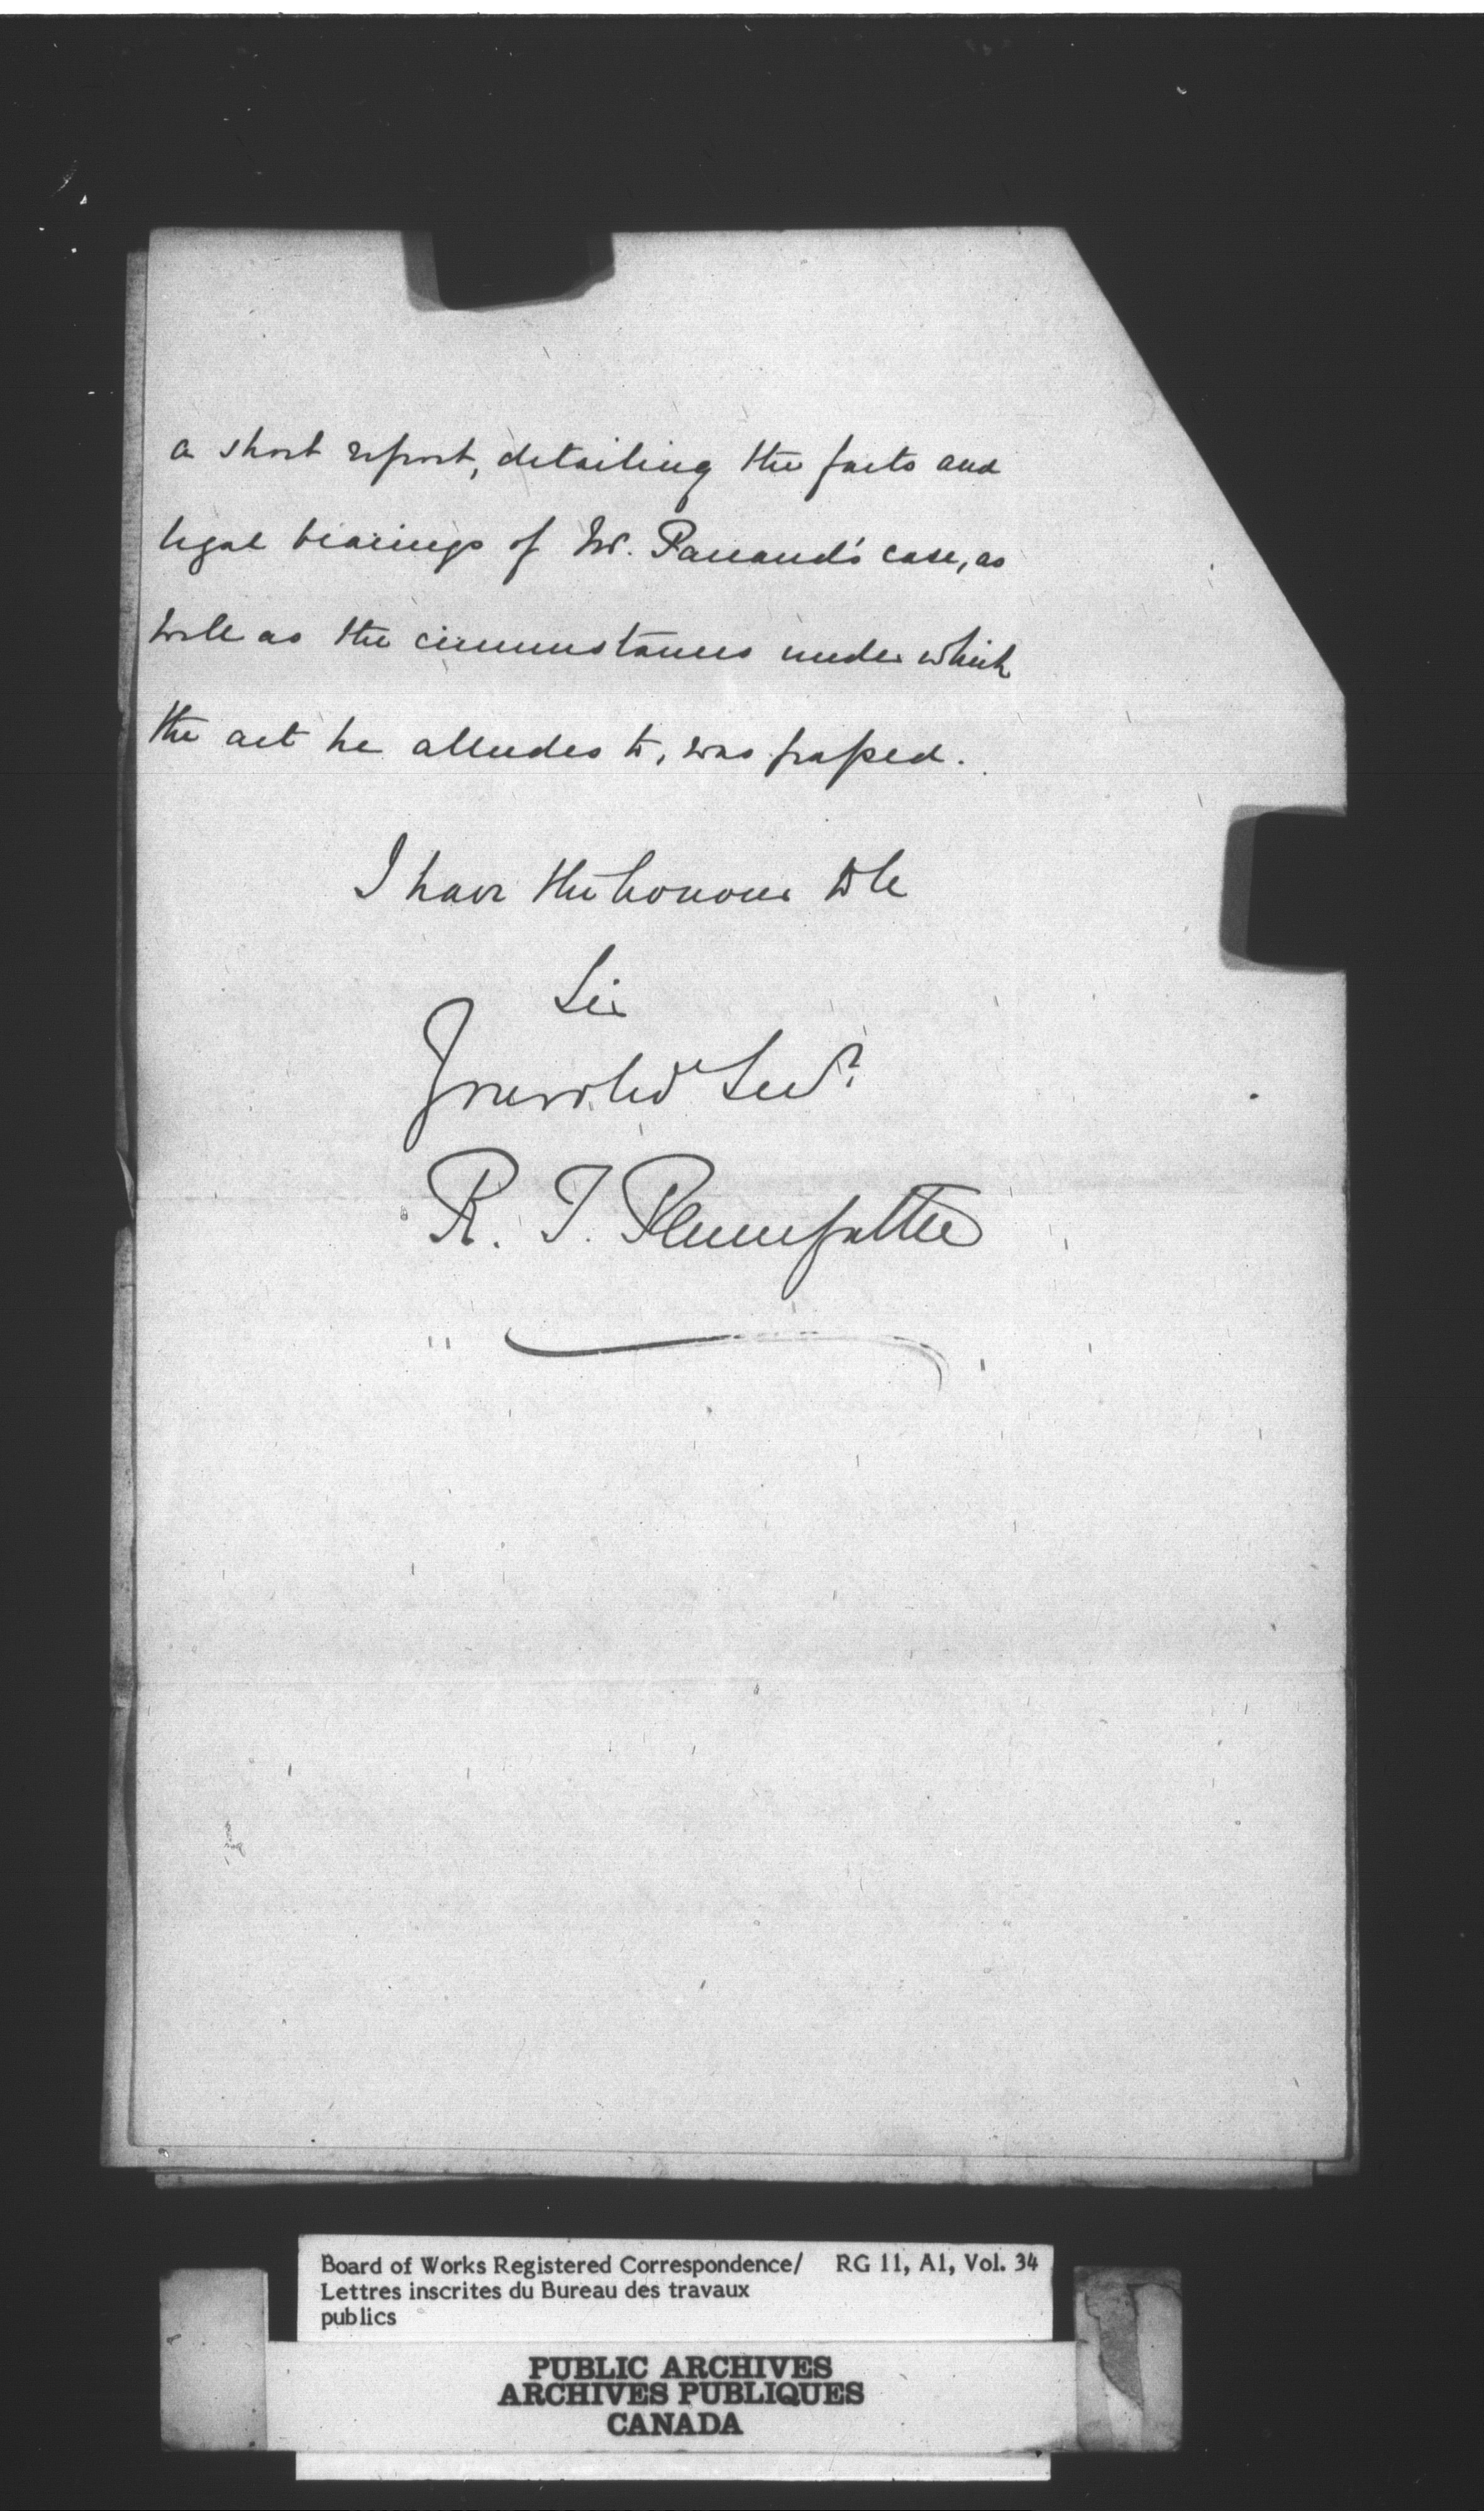 a short report, detailing the facts and
legal bearings of Mr. Parrand's case, as
well as the circumstances under which
the act he alludes to, was passed.
I have the honour to be
Sir
Your obed Servt
R. T. Pennefather
Board of Works Registered Correspondence/ RG 11, A1, Vol. 34
Lettres inscrites du Bureau des travaux
publics
PUBLIC ARCHIVES
ARCHIVES PUBLIQUES
CANADA